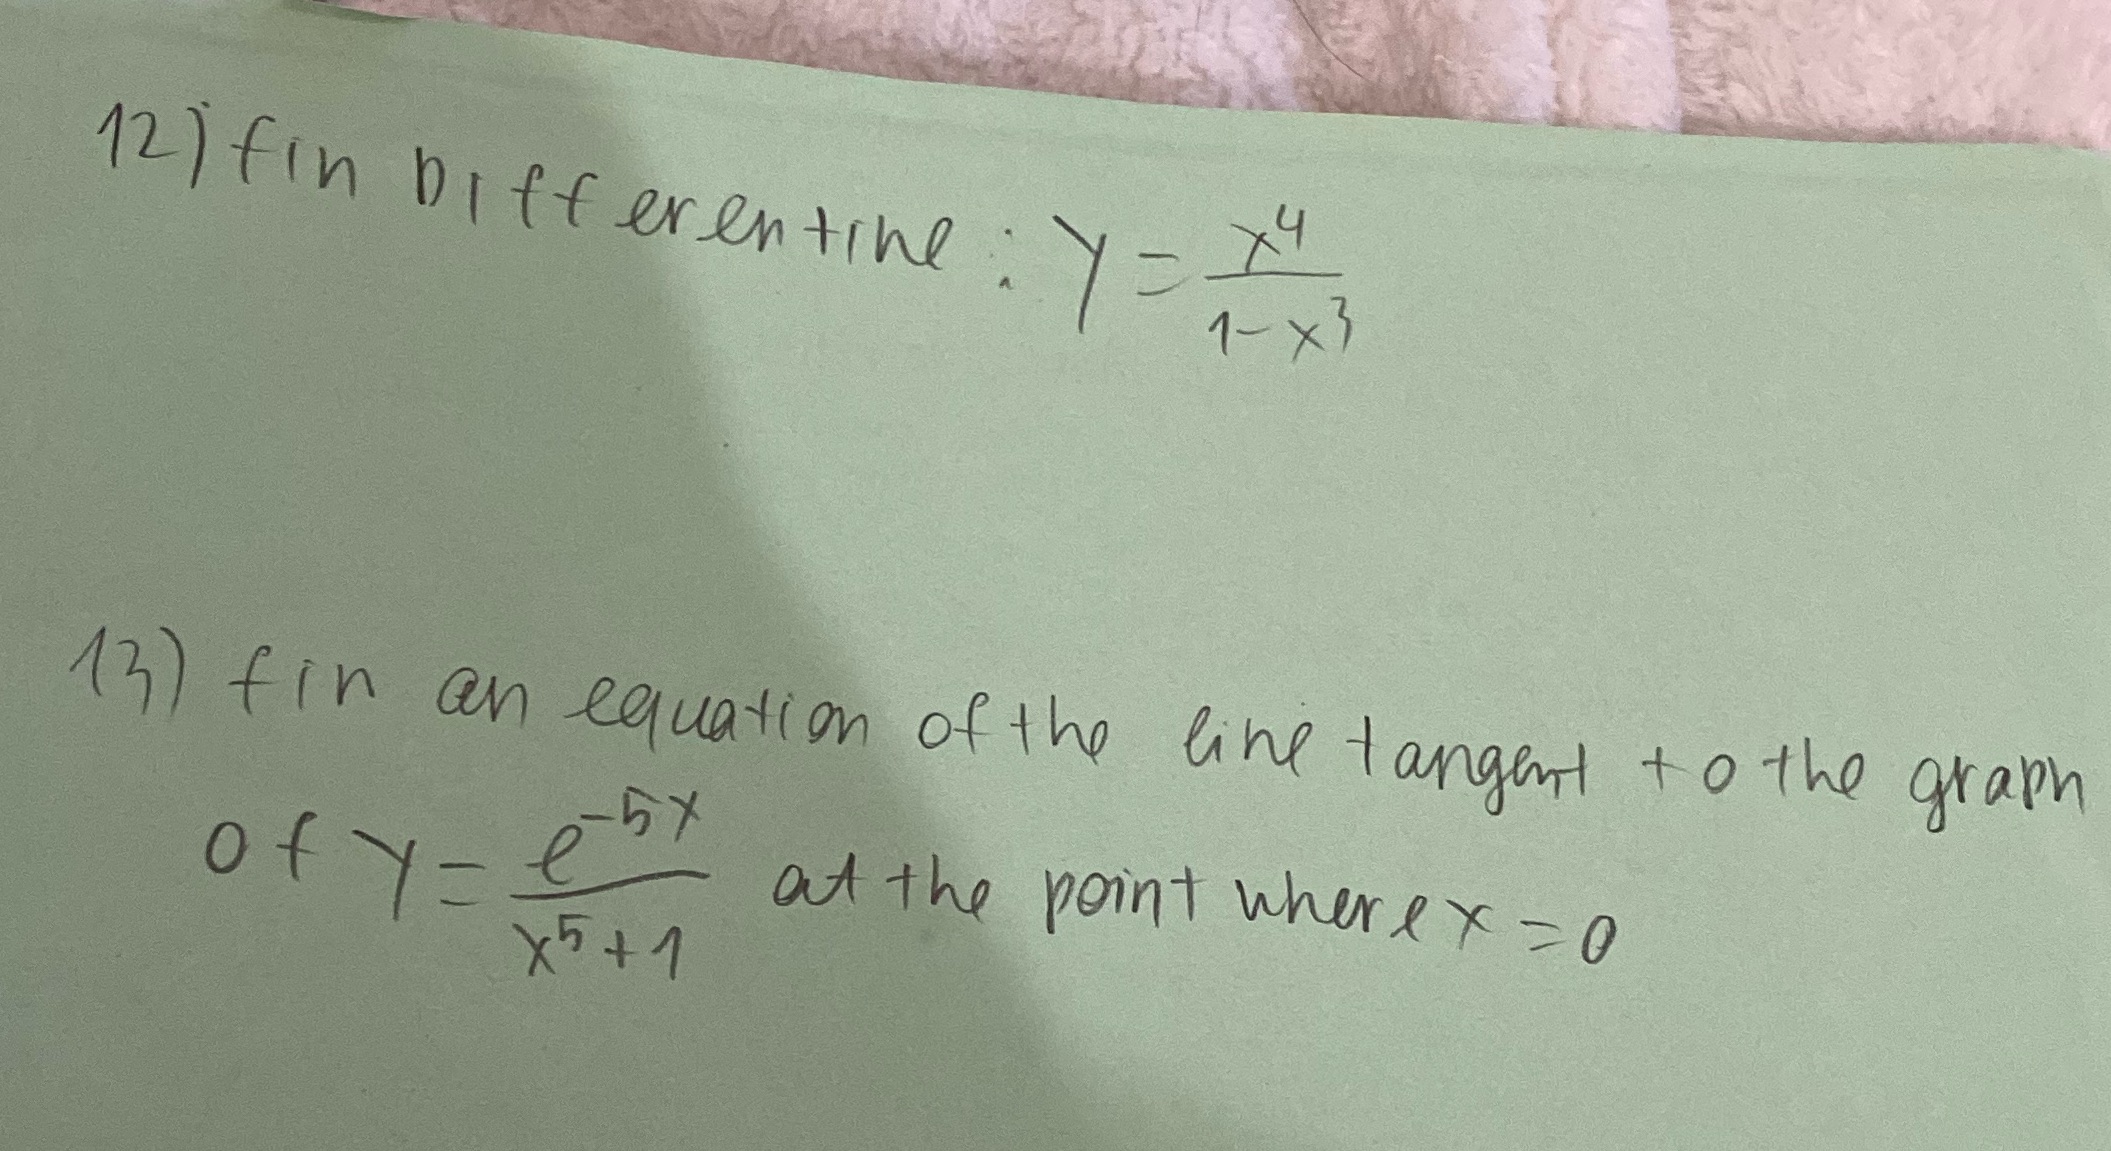 12) fin Differentine : y = x^4 / (1-x^3)
13) fin an equation of the line tangent to the graph
of y = e^{-5x} / (x^5+1) at the point where x = 0